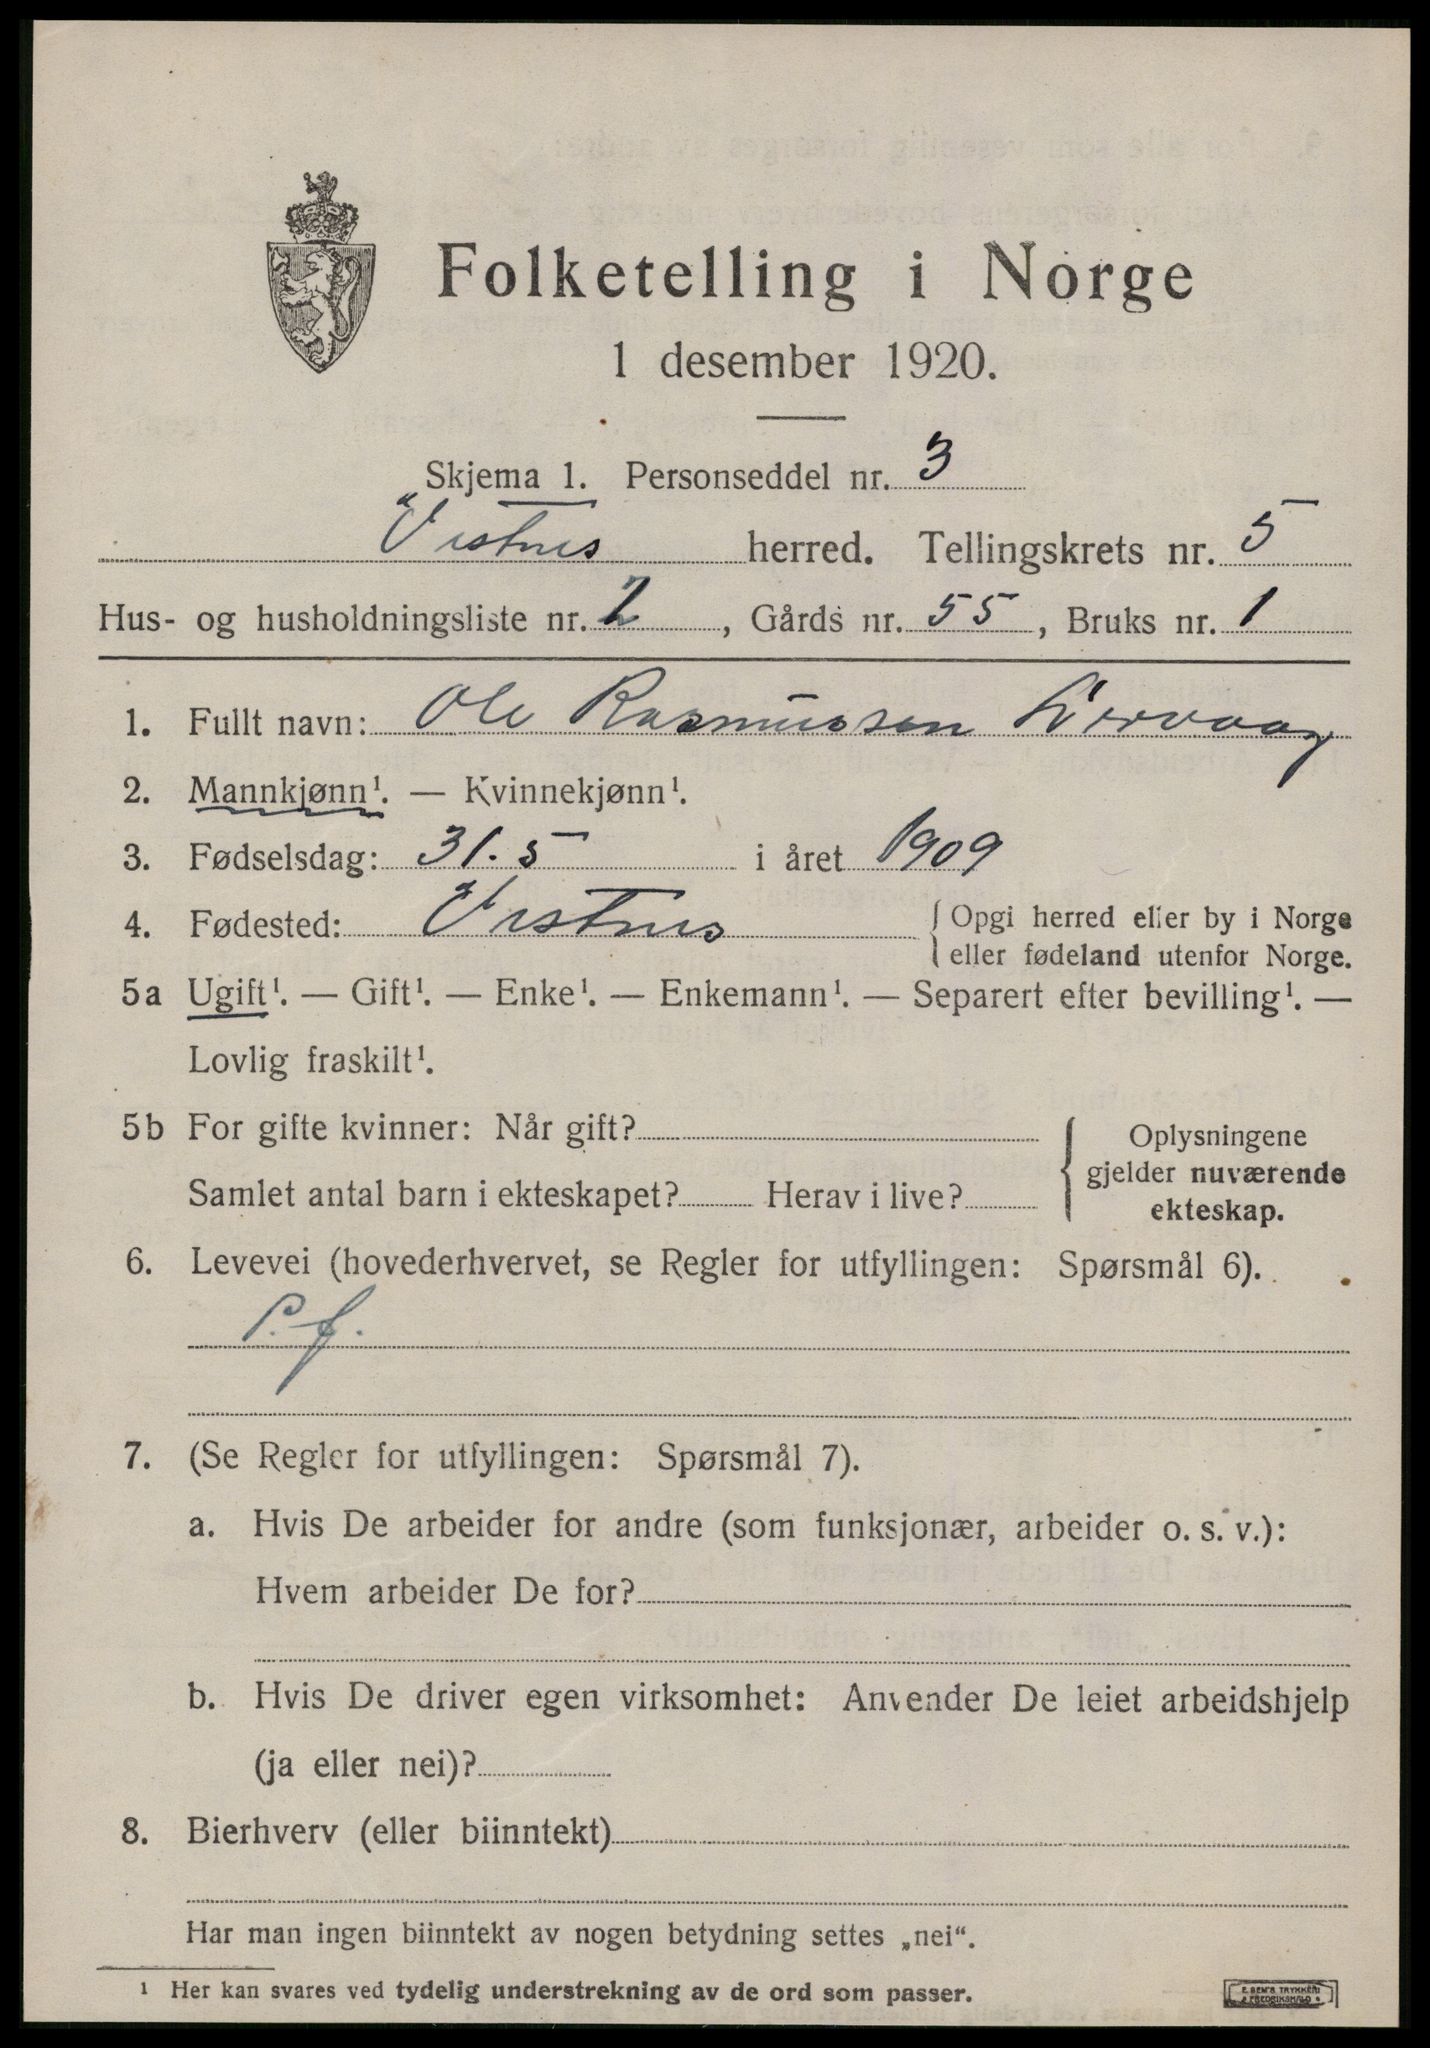 Folketelling i Norge
1 desember 1920.
Skjema 1. Personseddel nr. 3
Vestnes herred. Tellingskrets nr. 5
Hus- og husholdningsliste nr. 2, Gårds nr. 55, Bruks nr. 1
1. Fullt navn: Ole Rasmussen
2. Mannkjønn¹. — Kvinnekjønn¹.
3. Fødselsdag: 31.5 i året 1909
4. Fødested: Vestnes { Opgi herred eller by i Norge
eller fødeland utenfor Norge.
5a Ugift¹. — Gift¹. — Enke¹. — Enkemann¹. — Separert efter bevilling¹. —
Lovlig fraskilt¹.
5b For gifte kvinner: Når gift?
Samlet antal barn i ekteskapet? Herav i live?
{ Oplysningene
gjelder nuværende
ekteskap.
6. Levevei (hovederhvervet, se Regler for utfyllingen: Spørsmål 6).
P. f.
7. (Se Regler for utfyllingen: Spørsmål 7).
a. Hvis De arbeider for andre (som funksjonær, arbeider o. s. v.):
Hvem arbeider De for?
b. Hvis De driver egen virksomhet: Anvender De leiet arbeidshjelp
(ja eller nei)?
8. Bierhverv (eller biinntekt)
Har man ingen biinntekt av nogen betydning settes „nei“.
¹ Her kan svares ved tydelig understrekning av de ord som passer.
E. SEM'S TRYKKERI
FREDRIKSHALD